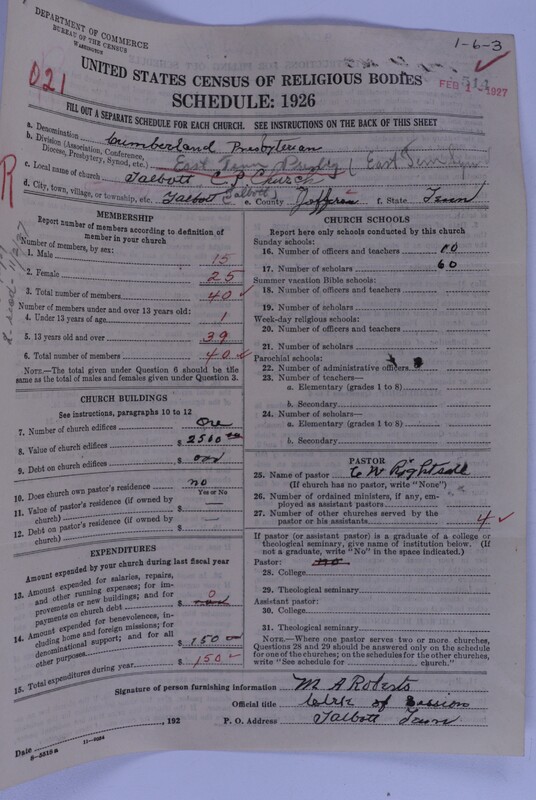 DEPARTMENT OF COMMERCE
BUREAU OF THE CENSUS
WASHINGTON
1-6-3
021
511
FEB 1 - 1927
UNITED STATES CENSUS OF RELIGIOUS BODIES
SCHEDULE: 1926
FILL OUT A SEPARATE SCHEDULE FOR EACH CHURCH. SEE INSTRUCTIONS ON THE BACK OF THIS SHEET
a. Denomination Cumberland Presbyterian
b. Division (Association, Conference, Diocese, Presbytery, Synod, etc.) East Tenn Presby (East Tenn Syn)
c. Local name of church Talbott C P Church
d. City, town, village, or township, etc. Talbott (Talbott) e. County Jefferson f. State Tenn
R
MEMBERSHIP
Report number of members according to definition of member in your church
Number of members, by sex:
1. Male 15
2. Female 25
3. Total number of members 40 ✓
Number of members under and over 13 years old:
4. Under 13 years of age 1
5. 13 years old and over 39
6. Total number of members 40 ✓
NOTE.—The total given under Question 6 should be the same as the total of males and females given under Question 3.
CHURCH BUILDINGS
See instructions, paragraphs 10 to 12
7. Number of church edifices One
8. Value of church edifices $ 2500 00
9. Debt on church edifices $
10. Does church own pastor's residence no
Yes or No
11. Value of pastor's residence (if owned by church) $ —
12. Debt on pastor's residence (if owned by church) $ —
EXPENDITURES
Amount expended by your church during last fiscal year
13. Amount expended for salaries, repairs, and other running expenses; for improvements or new buildings; and for payments on church debt $ 0
14. Amount expended for benevolences, including home and foreign missions; for denominational support; and for all other purposes $ 150
15. Total expenditures during year $ 150 ✓
CHURCH SCHOOLS
Report here only schools conducted by this church
Sunday schools:
16. Number of officers and teachers 10
17. Number of scholars 60
Summer vacation Bible schools:
18. Number of officers and teachers
19. Number of scholars
Week-day religious schools:
20. Number of officers and teachers
21. Number of scholars
Parochial schools:
22. Number of administrative officers
23. Number of teachers—
a. Elementary (grades 1 to 8)
b. Secondary
24. Number of scholars—
a. Elementary (grades 1 to 8)
b. Secondary
PASTOR
25. Name of pastor C W Rightsell
(If church has no pastor, write "None")
26. Number of ordained ministers, if any, employed as assistant pastors
27. Number of other churches served by the pastor or his assistants 4 ✓
If pastor (or assistant pastor) is a graduate of a college or theological seminary, give name of institution below. (If not a graduate, write "No" in the space indicated.)
Pastor: no
28. College
29. Theological seminary
Assistant pastor:
30. College
31. Theological seminary
NOTE.—Where one pastor serves two or more churches, Questions 28 and 29 should be answered only on the schedule for one of the churches; on the schedules for the other churches, write "See schedule for church."
Signature of person furnishing information M A Roberts
Official title Clerk of Session
Date , 192 P. O. Address Talbott Tenn
8-5518a 11-9284